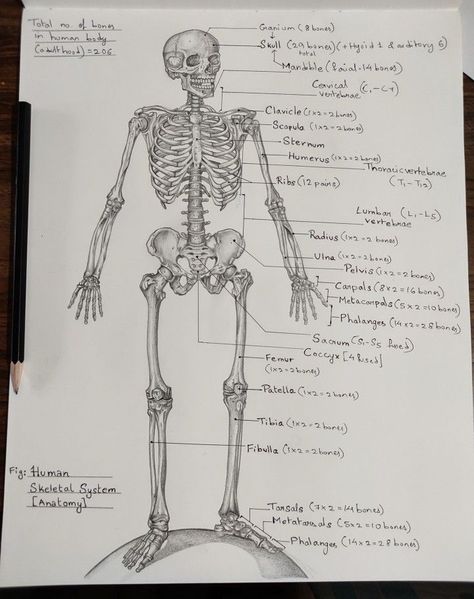 Total no. of bones
in human body
(adulthood) = 206
Cranium (8 bones)
Skull (29 bones) (+Hyoid 1 & auditory 6)
total
Mandible (facial-14 bones)
Cervical (C₁-C7)
vertebrae
Clavicle (1x2=2bones)
Scapula (1x2=2bones)
Sternum
Humerus (1x2=2bones)
Thoracic vertebrae
(T₁-T₁₂)
Ribs (12 pairs)
Lumbar (L₁-L5)
vertebrae
Radius (1x2=2 bones)
Ulna (1x2=2bones)
Pelvis (1x2=2 bones)
Carpals (8x2=16 bones)
Metacarpals (5x2=10 bones)
Phalanges (14x2=28 bones)
Sacrum (S₁-S5 fused)
Coccyx [4 fused]
Femur
(1x2=2bones)
Patella (1x2=2bones)
Tibia (1x2=2bones)
Fibulla (1x2=2 bones)
Fig: Human
Skeletal System
[Anatomy]
Tarsals (7x2=14 bones)
Metatarsals (5x2=10 bones)
Phalanges (14x2=28 bones)